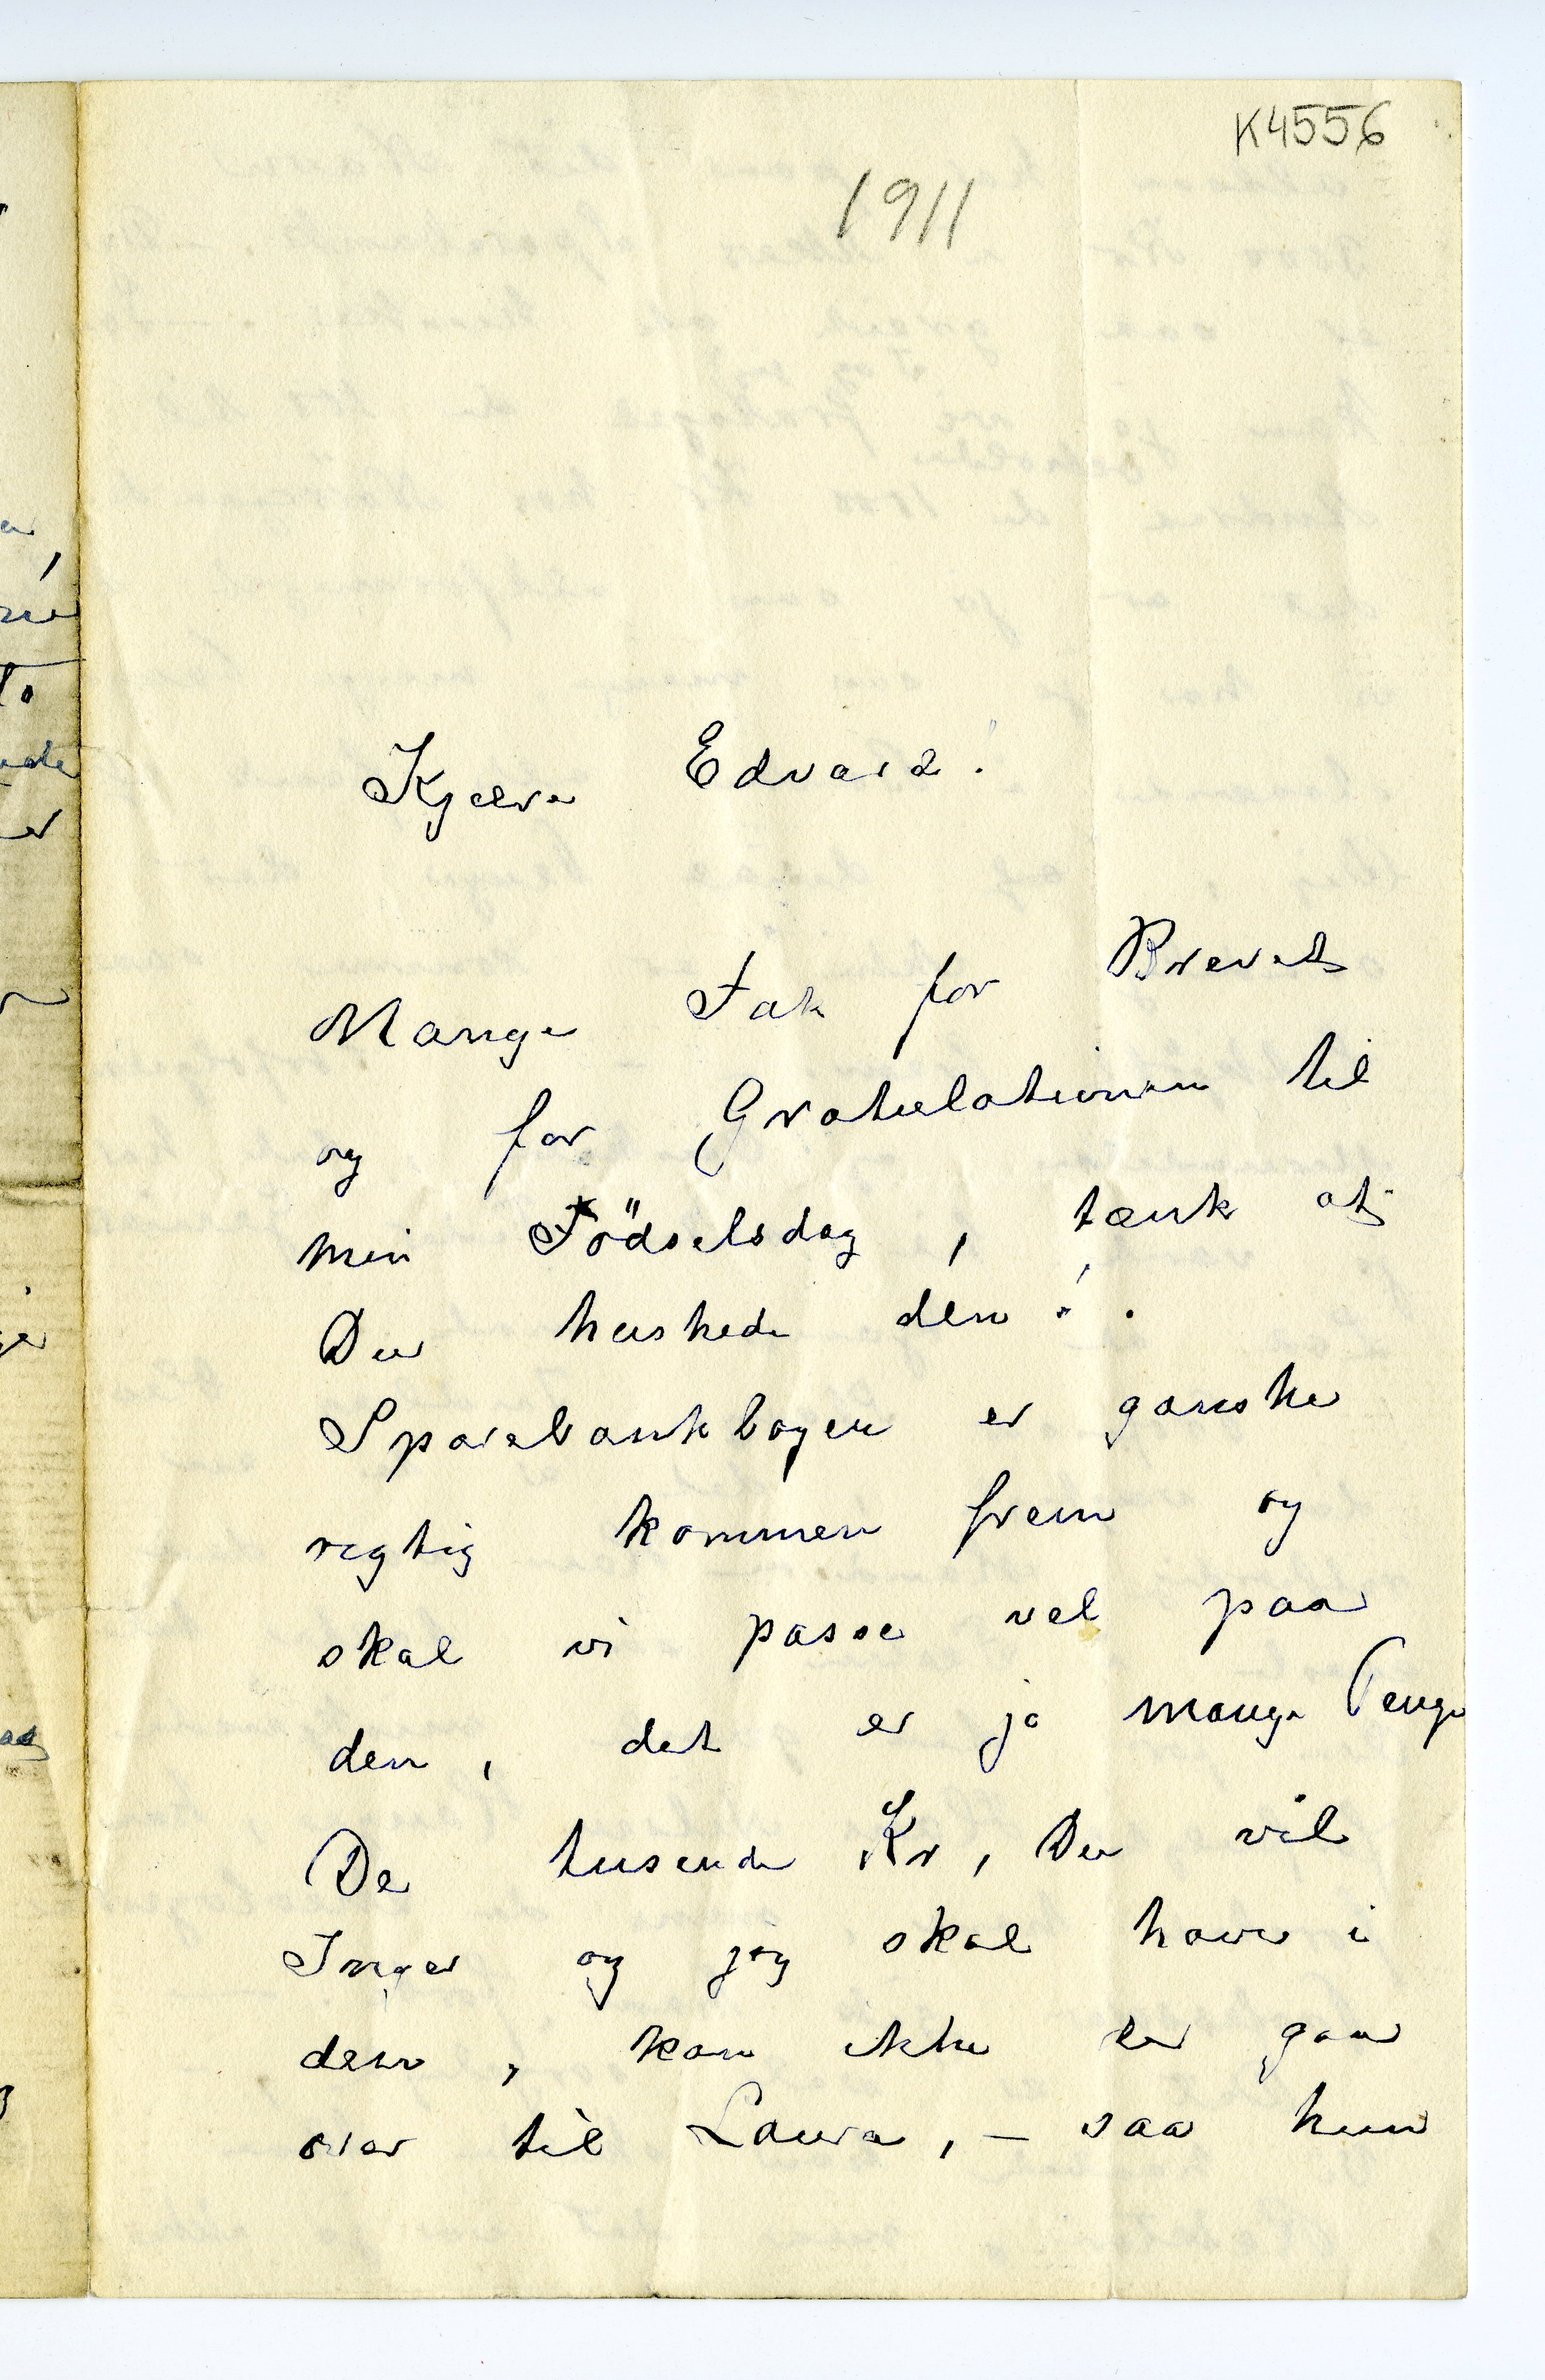 K4556
1911
Kjære Edvard!
Mange Tak for Brevet
og for Gratulationen til
min Födselsdag, tænk at
Du huskede den!.
Sparebankbogen er ganske
rigtig kommen frem og
skal vi passe vel paa
den, det er ja mange Penge
De tusende Kr, Du vil
Inger og jeg skal have i
den, kan ikke de gaa
over til Laura, – saa hun